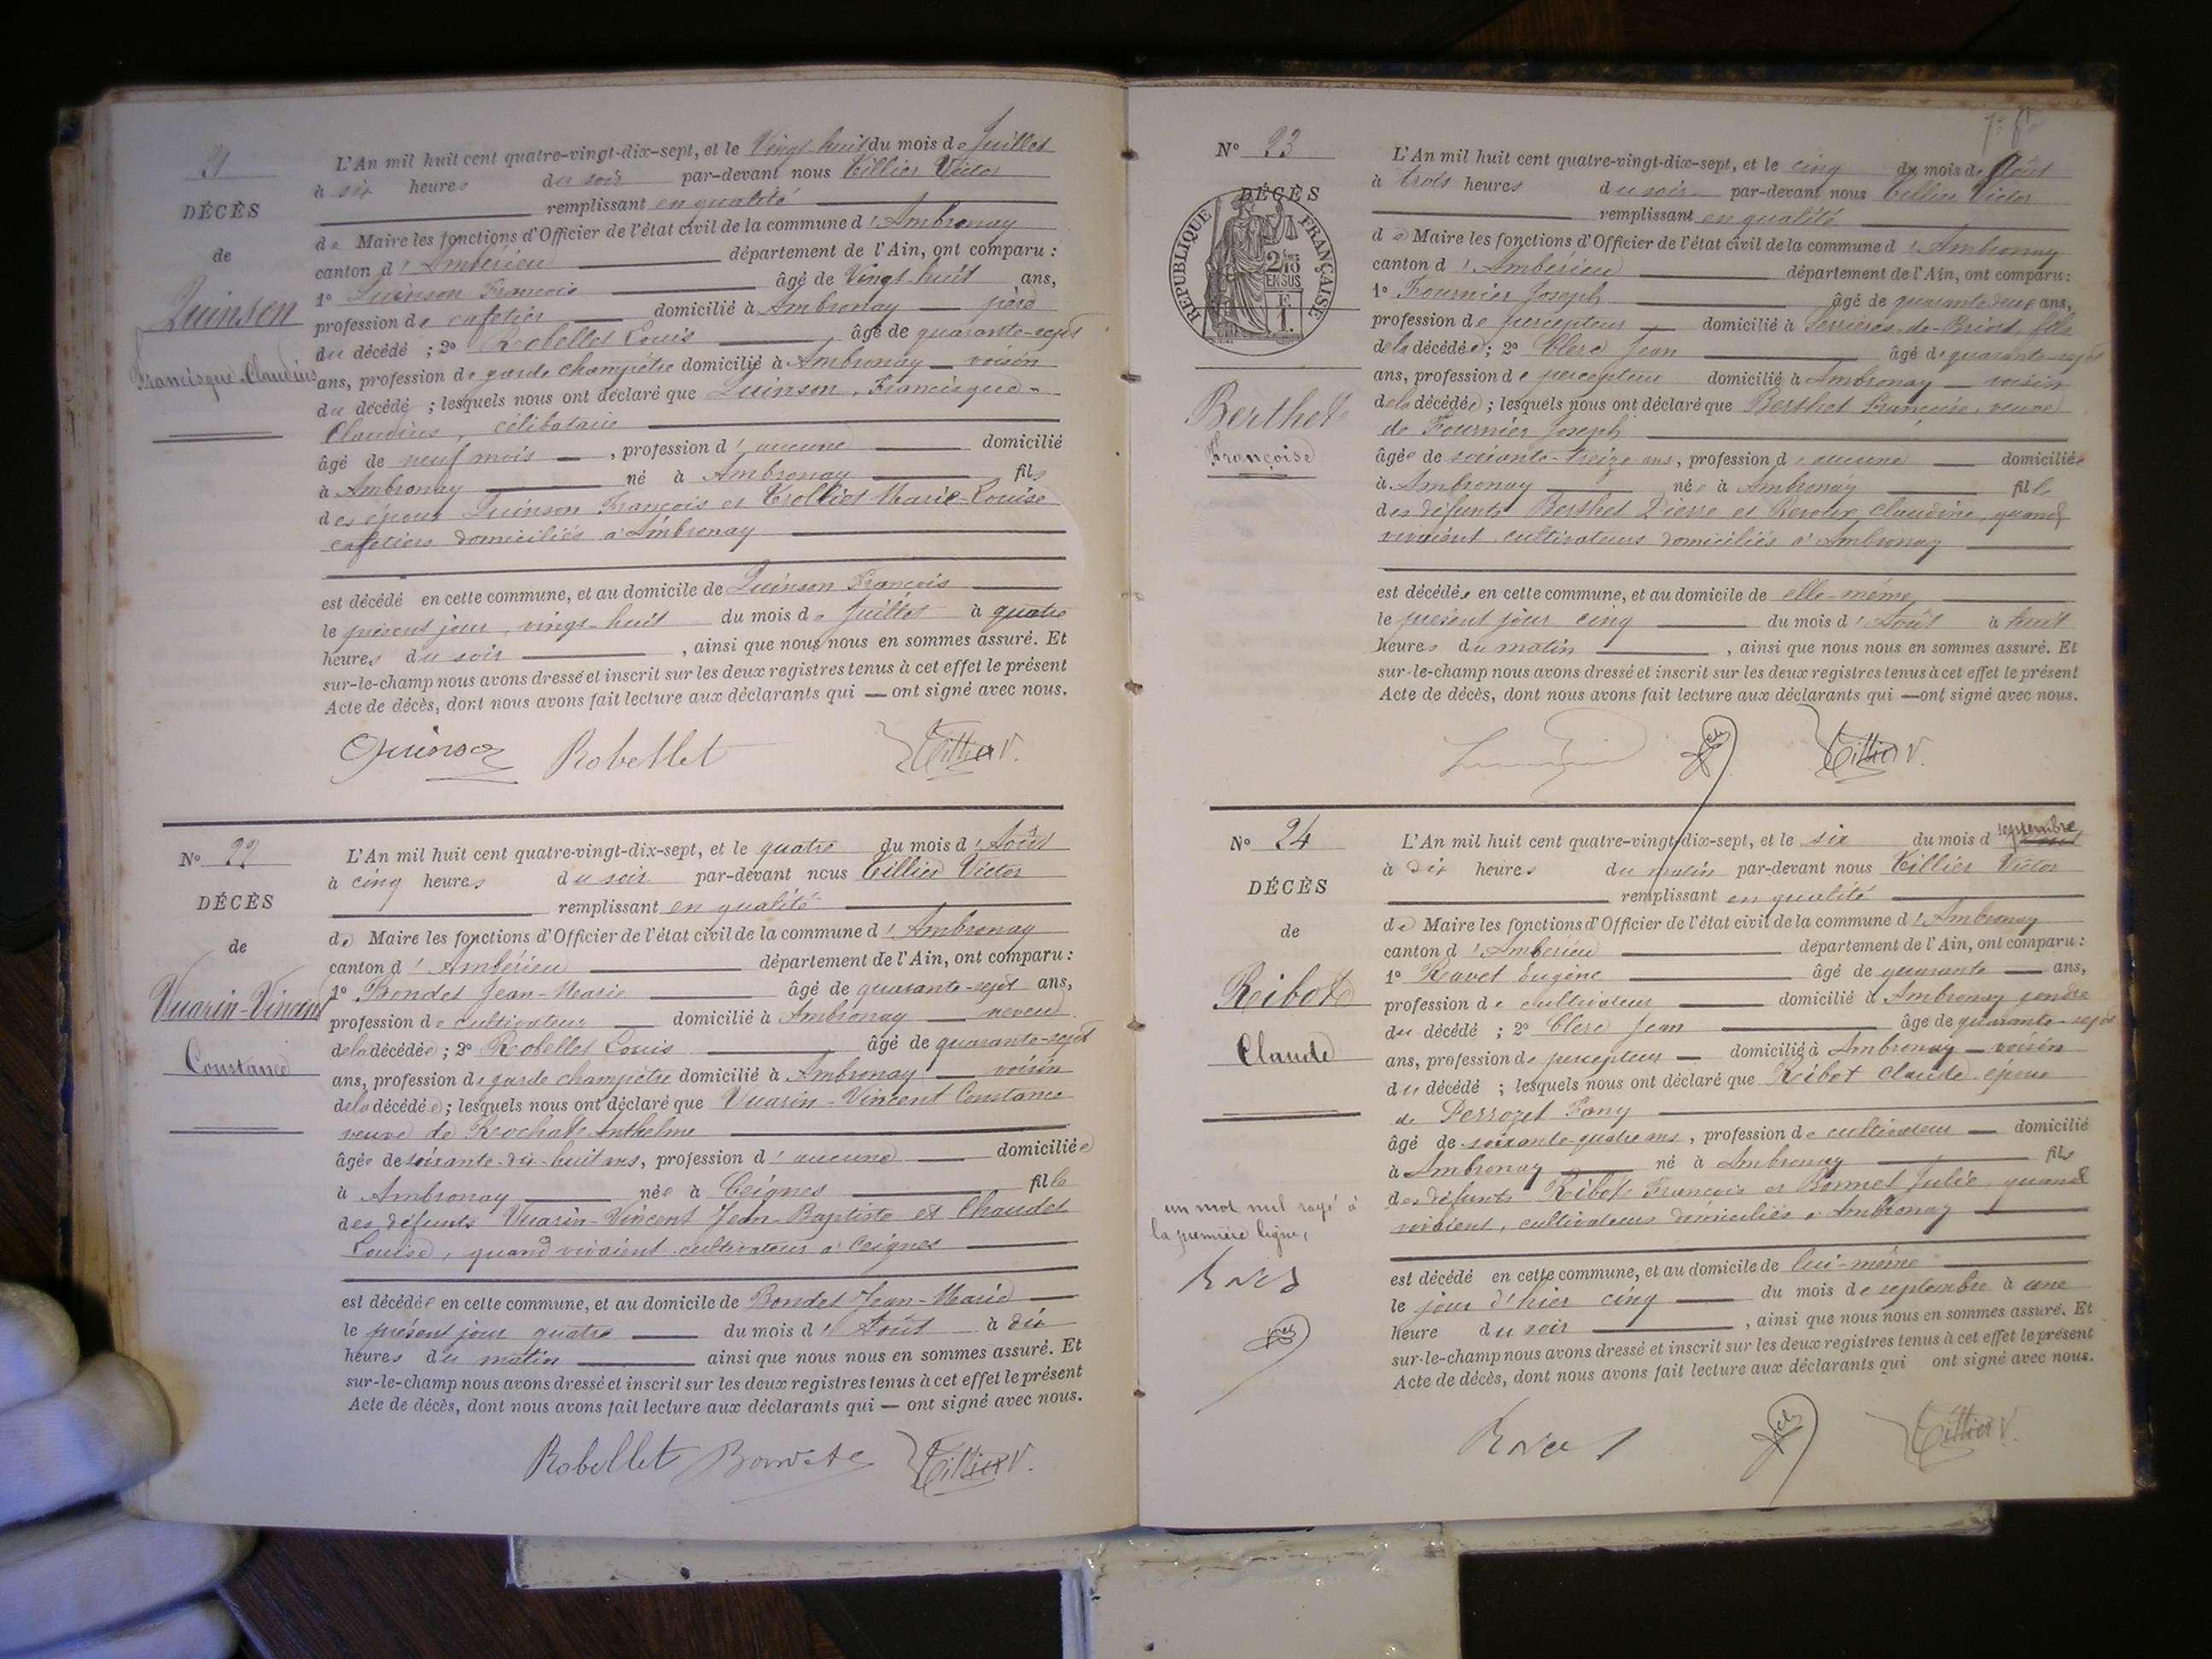 21
DÉCÈS
de
Quinson
Francisque-Claudius
L'An mil huit cent quatre-vingt-dix-sept, et le Vingt-huit du mois de Juillet
à six heures du soir par-devant nous Tillier Victor
remplissant en qualité
de Maire les fonctions d'Officier de l'état civil de la commune d'Ambronay
canton d'Ambérieu département de l'Ain, ont comparu :
1° Quinson François âgé de Vingt-huit ans,
profession de cafetier domicilié à Ambronay père
du décédé ; 2° Robellet Louis âgé de quarante-sept
ans, profession de garde champêtre domicilié à Ambronay voisin
du décédé ; lesquels nous ont déclaré que Quinson, Francisque-
Claudius, célibataire
âgé de neuf mois, profession d'aucune domicilié
à Ambronay né à Ambronay fils
des époux Quinson François et Trolliet Marie-Louise
cafetiers domiciliés à Ambronay
est décédé en cette commune, et au domicile de Quinson François
le présent jour, vingt-huit du mois de Juillet à quatre
heures du soir, ainsi que nous nous en sommes assuré. Et
sur-le-champ nous avons dressé et inscrit sur les deux registres tenus à cet effet le présent
Acte de décès, dont nous avons fait lecture aux déclarants qui — ont signé avec nous.
Quinson Robellet Tillier V.
N° 22
DÉCÈS
de
Vuarin-Vincent
Constance
L'An mil huit cent quatre-vingt-dix-sept, et le quatre du mois d'Août
à cinq heures du soir par-devant nous Tillier Victor
remplissant en qualité
de Maire les fonctions d'Officier de l'état civil de la commune d'Ambronay
canton d'Ambérieu département de l'Ain, ont comparu :
1° Bondet Jean-Marie âgé de quarante-sept ans,
profession de cultivateur domicilié à Ambronay neveu
de la décédée ; 2° Robellet Louis âgé de quarante-sept
ans, profession de garde champêtre domicilié à Ambronay voisin
de la décédée ; lesquels nous ont déclaré que Vuarin-Vincent Constance
veuve de Rochat Anthelme
âgée de soixante-dix-huit ans, profession d'aucune domiciliée
à Ambronay née à Ceignes fille
des défunts Vuarin-Vincent Jean-Baptiste et Chaudet
Louise, quand vivaient cultivateurs à Ceignes
est décédée en cette commune, et au domicile de Bondet Jean-Marie
le présent jour quatre du mois d'Août à dix
heures du matin ainsi que nous nous en sommes assuré. Et
sur-le-champ nous avons dressé et inscrit sur les deux registres tenus à cet effet le présent
Acte de décès, dont nous avons fait lecture aux déclarants qui — ont signé avec nous.
Robellet Bondet Tillier V.
N° 23
DÉCÈS
RÉPUBLIQUE FRANÇAISE
Berthet
Françoise
L'An mil huit cent quatre-vingt-dix-sept, et le cinq du mois d'Août
à trois heures du soir par-devant nous Tillier Victor
remplissant en qualité
de Maire les fonctions d'Officier de l'état civil de la commune d'Ambronay
canton d'Ambérieu département de l'Ain, ont comparu :
1° Fournier Joseph âgé de quarante deux ans,
profession de percepteur domicilié à Serrières-de-Briord, fils
de la décédée ; 2° Clerc Jean âgé de quarante-sept
ans, profession de percepteur domicilié à Ambronay voisin
de la décédée ; lesquels nous ont déclaré que Berthet Françoise, veuve
de Fournier Joseph
âgée de soixante-treize ans, profession d'aucune domiciliée
à Ambronay née à Ambronay fille
des défunts Berthet Pierre et Claudine, quand
vivaient cultivateurs domiciliés à Ambronay
est décédée en cette commune, et au domicile de elle-même
le présent jour cinq du mois d'Août à huit
heures du matin, ainsi que nous nous en sommes assuré. Et
sur-le-champ nous avons dressé et inscrit sur les deux registres tenus à cet effet le présent
Acte de décès, dont nous avons fait lecture aux déclarants qui — ont signé avec nous.
Tillier V.
N° 24
DÉCÈS
de
Ribot
Claude
un mot nul rayé à
la première ligne,
L'An mil huit cent quatre-vingt-dix-sept, et le six du mois d septembre
à dix heures du matin par-devant nous Tillier Victor
remplissant en qualité
de Maire les fonctions d'Officier de l'état civil de la commune d'Ambronay
canton d'Ambérieu département de l'Ain, ont comparu :
1° Ravet Eugène âgé de quarante ans,
profession de cultivateur domicilié à Ambronay gendre
du décédé ; 2° Clerc Jean âgé de quarante-sept
ans, profession de percepteur domicilié à Ambronay voisin
du décédé ; lesquels nous ont déclaré que Ribot Claude époux
de Perrozet Fany
âgé de soixante-quatre ans, profession de cultivateur domicilié
à Ambronay né à Ambronay fils
des défunts Ribot François et Bonnet Julie quand
vivaient, cultivateurs domiciliés à Ambronay
est décédé en cette commune, et au domicile de lui-même
le jour d'hier cinq du mois de septembre à une
heure du soir, ainsi que nous nous en sommes assuré. Et
sur-le-champ nous avons dressé et inscrit sur les deux registres tenus à cet effet le présent
Acte de décès, dont nous avons fait lecture aux déclarants qui ont signé avec nous.
Ravet Tillier V.